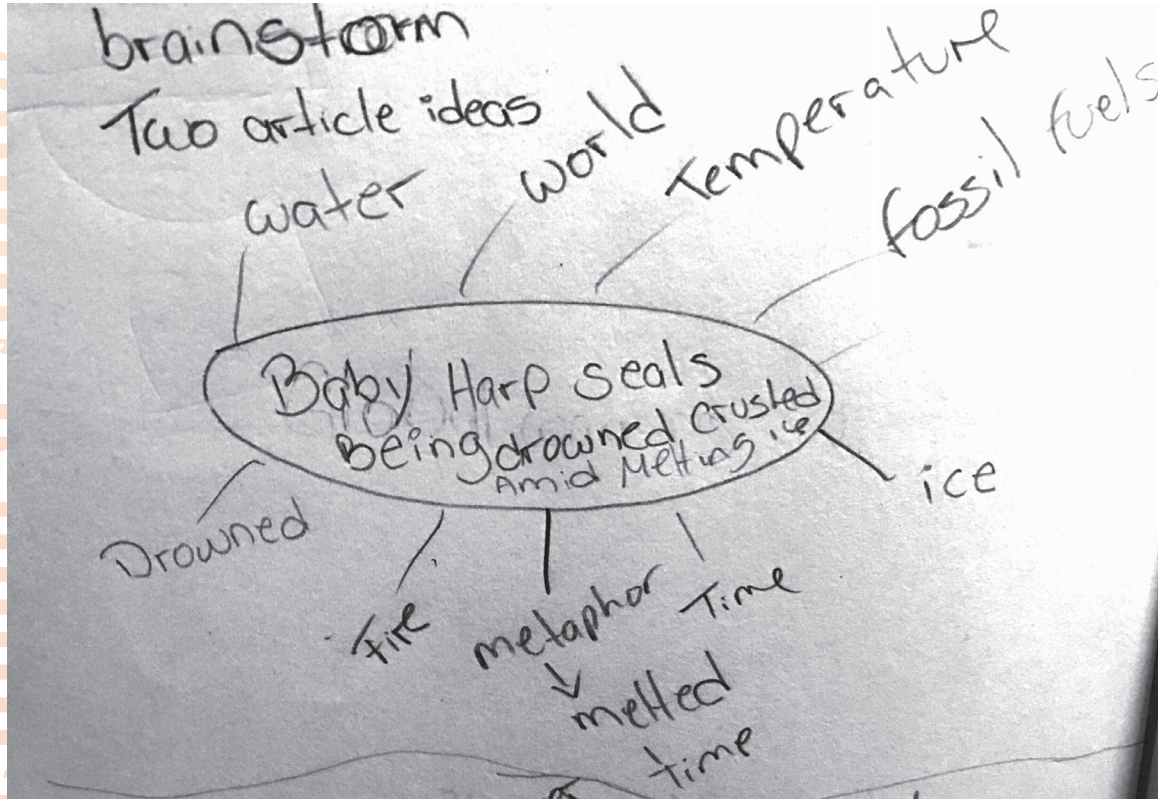 brainstorm
Two article ideas
water
world
Temperature
fossil fuels
Baby Harp seals
Being drowned Crusted
Amid Melting ice
ice
Drowned
Fire
metaphor
Time
melted
time